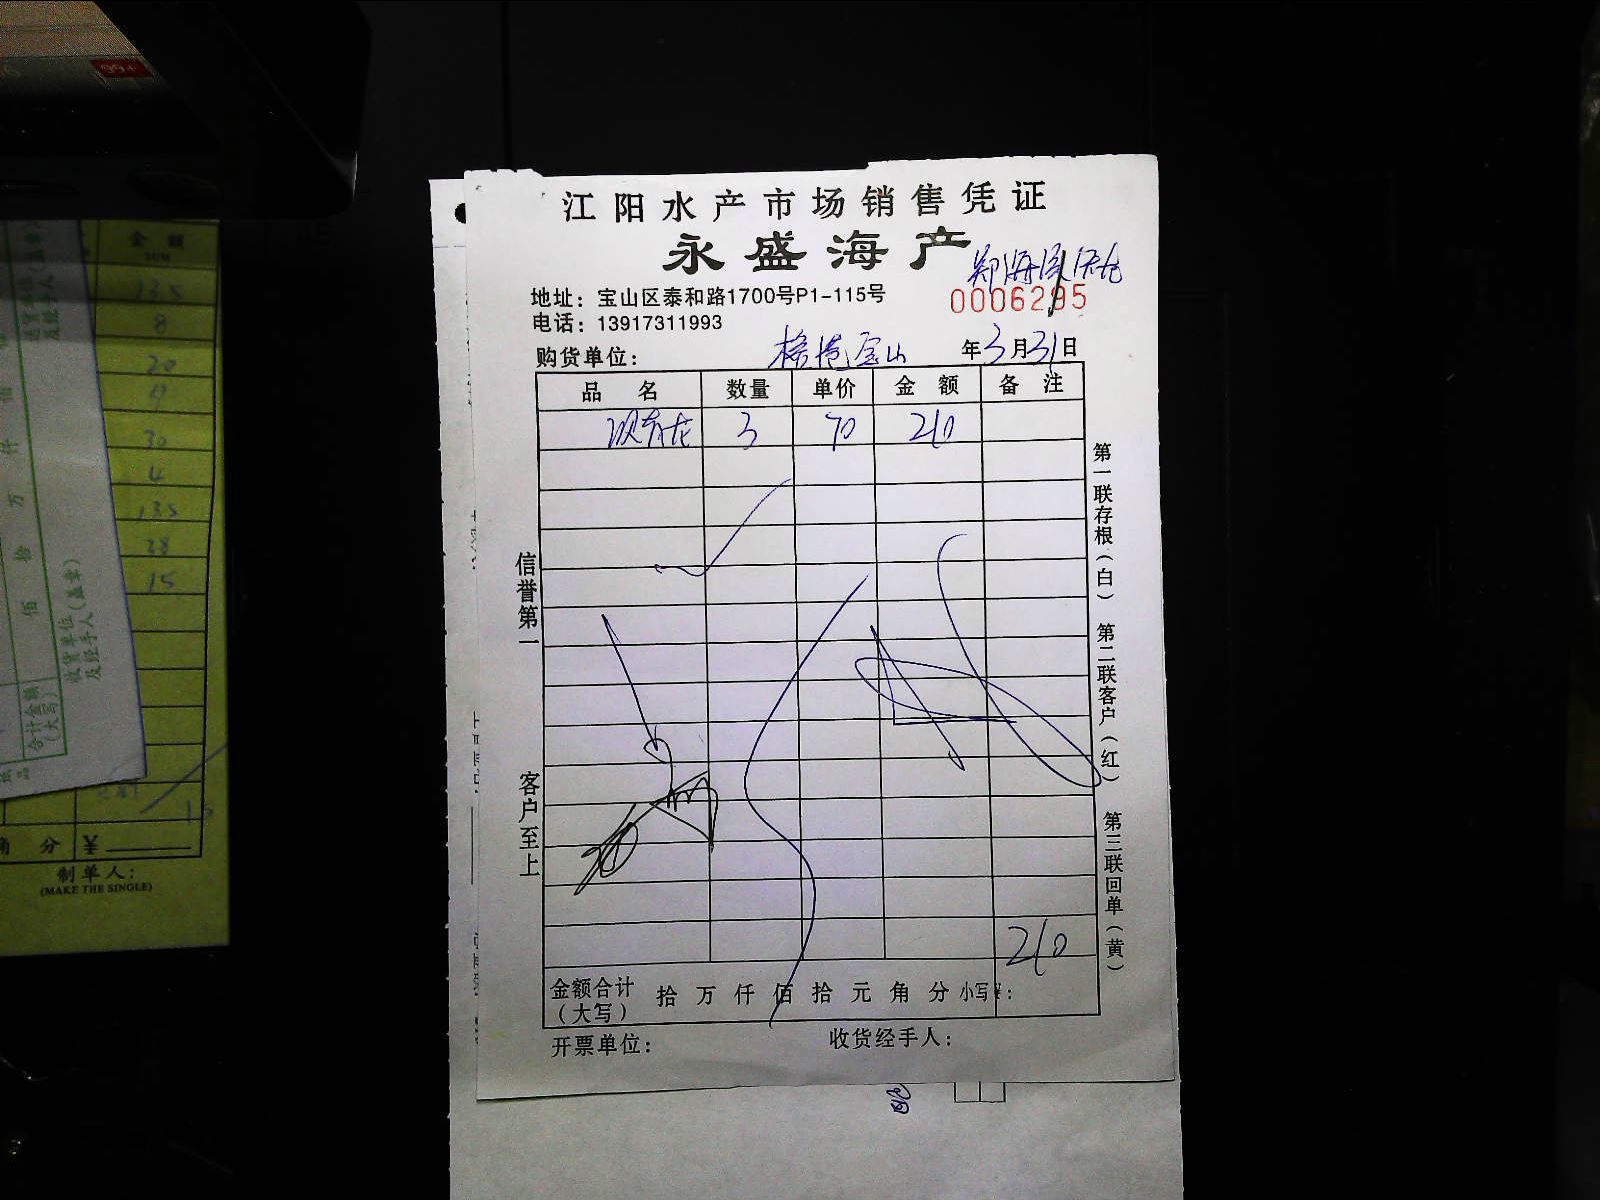 江阳水产市场销售凭证
永盛海产
地址：宝山区泰和路1700号P1-115号
0006295
电话：13917311993
购货单位： 宝山 年3月31日
品 名 数量 单价 金 额 备 注
3 70 210
信誉第一
客户至上
第一联存根（白） 第二联客户（红） 第三联回单（黄）
210
金额合计（大写） 拾 万 仟 佰 拾 元 角 分 小写¥：
开票单位： 收货经手人：
金 额
SUM
135
8
20
9
30
4
135
28
15
收货单位（盖章）
及经手人
合计金额
（大写）
万 拾 佰
角 分 ¥
制单人：
(MAKE THE SINGLE)